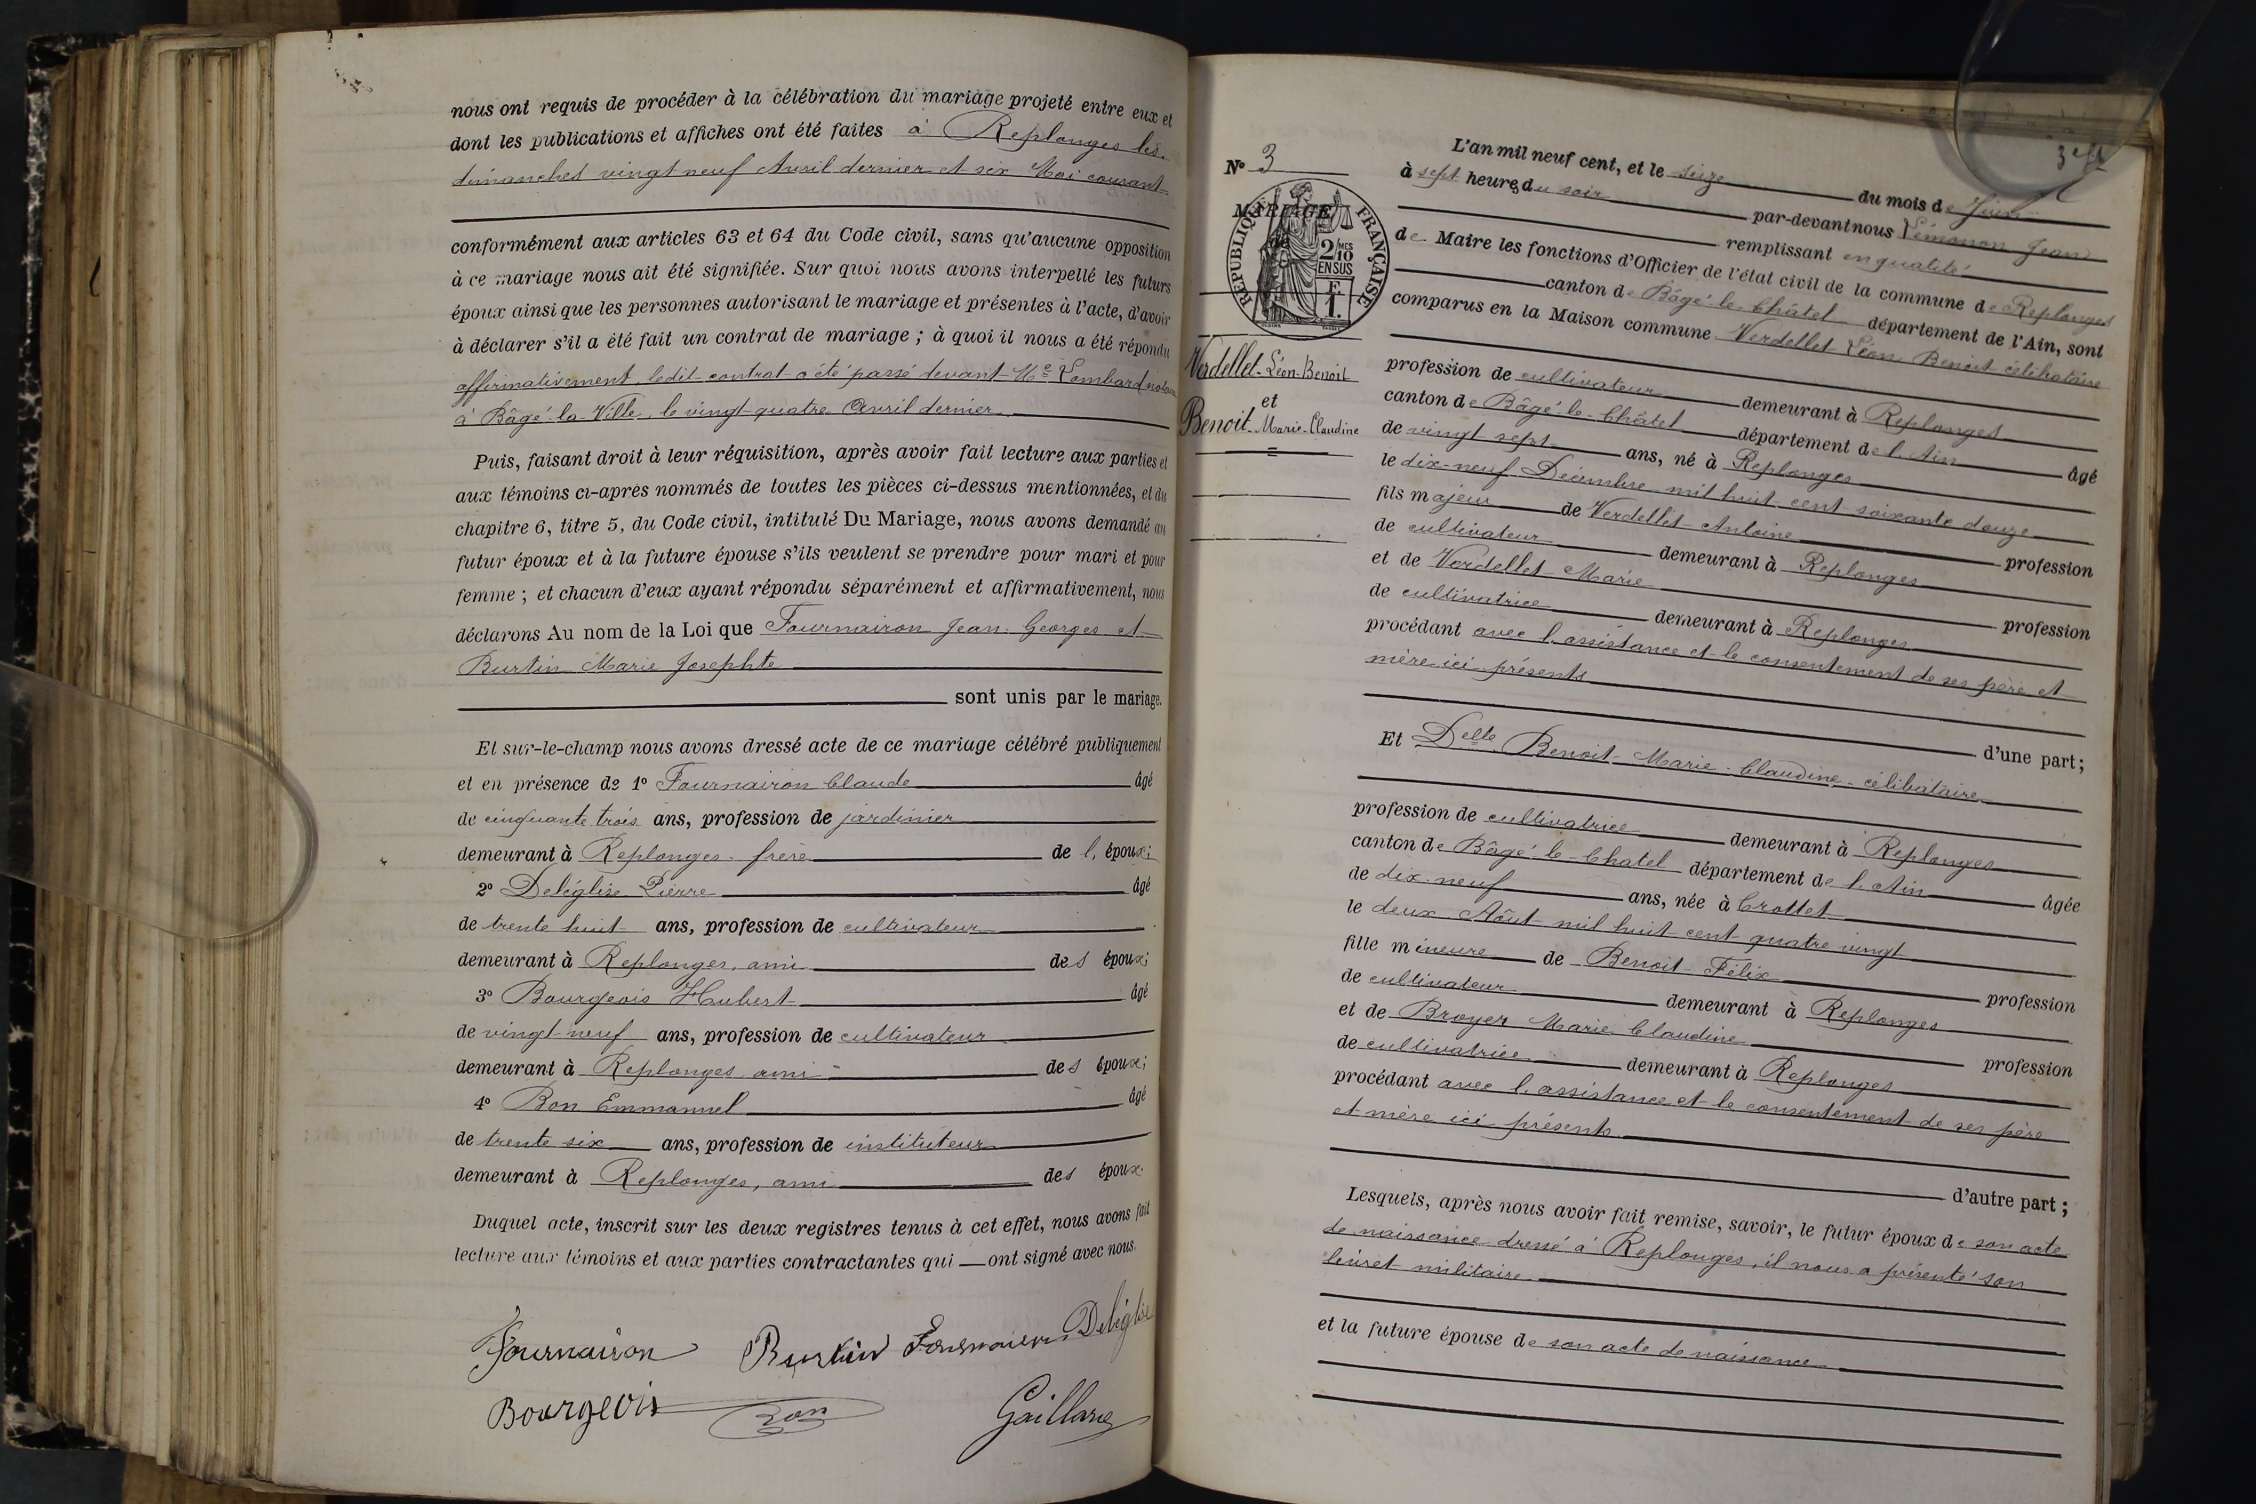 nous ont requis de procéder à la célébration du mariage projeté entre eux et
dont les publications et affiches ont été faites à Replonges les
dimanches vingt neuf Avril dernier et six Mai courant
conformément aux articles 63 et 64 du Code civil, sans qu'aucune opposition
à ce mariage nous ait été signifiée. Sur quoi nous avons interpellé les futurs
époux ainsi que les personnes autorisant le mariage et présentes à l'acte, d'avoir
à déclarer s'il a été fait un contrat de mariage ; à quoi il nous a été répondu
affirmativement, ledit contrat a été passé devant Me Lombard notaire
à Bâgé-la-Ville, le vingt-quatre Avril dernier
Puis, faisant droit à leur réquisition, après avoir fait lecture aux parties et
aux témoins ci-après nommés de toutes les pièces ci-dessus mentionnées, et du
chapitre 6, titre 5, du Code civil, intitulé Du Mariage, nous avons demandé au
futur époux et à la future épouse s'ils veulent se prendre pour mari et pour
femme ; et chacun d'eux ayant répondu séparément et affirmativement, nous
déclarons Au nom de la Loi que Fournairon Jean Georges et
Burtin Marie Josephte
sont unis par le mariage.
Et sur-le-champ nous avons dressé acte de ce mariage célébré publiquement
et en présence de 1° Fournairon Claude âgé
de cinquante trois ans, profession de jardinier
demeurant à Replonges frère de l'époux;
2° Deléglise Pierre âgé
de trente huit ans, profession de cultivateur
demeurant à Replonges, ami des époux;
3° Bourgeois Hubert âgé
de vingt-neuf ans, profession de cultivateur
demeurant à Replonges ami des époux;
4° Bon Emmanuel âgé
de trente six ans, profession de instituteur
demeurant à Replonges, ami des époux.
Duquel acte, inscrit sur les deux registres tenus à cet effet, nous avons fait
lecture aux témoins et aux parties contractantes qui ont signé avec nous.
Fournairon Burtin Fournairon Deléglise
Bourgeois Bon Gaillard
N° 3
MARIAGE
de
RÉPUBLIQUE FRANÇAISE
2/10 MES
EN SUS
F.
1.
Verdellet-Léon-Benoit
et
Benoit-Marie-Claudine
L'an mil neuf cent, et le seize du mois de Juin
à sept heures du soir par-devant nous Lémonon Jean
remplissant en qualité
de Maire les fonctions d'Officier de l'état civil de la commune de Replonges
canton de Bâgé-le-Châtel département de l'Ain, sont
comparus en la Maison commune Verdellet Léon Benoit célibataire
profession de cultivateur demeurant à Replonges
canton de Bâgé-le-Châtel département de l'Ain âgé
de vingt sept ans, né à Replonges
le dix-neuf Décembre mil huit cent soixante douze
fils majeur de Verdellet Antoine profession
de cultivateur demeurant à Replonges
et de Verdellet Marie profession
de cultivatrice demeurant à Replonges
procédant avec l'assistance et le consentement de ses père et
mère ici présents
d'une part;
Et Delle Benoit-Marie-Claudine célibataire
profession de cultivatrice demeurant à Replonges
canton de Bâgé-le-Chatel département de l'Ain âgée
de dix-neuf ans, née à Crottet
le deux Aôut mil huit cent quatre vingt
fille mineure de Benoit Félix profession
de cultivateur demeurant à Replonges
et de Broyer Marie Claudine profession
de cultivatrice demeurant à Replonges
procédant avec l'assistance et le consentement de ses père
et mère ici présents
d'autre part ;
Lesquels, après nous avoir fait remise, savoir, le futur époux de son acte
de naissance dressé à Replonges, il nous a présenté son
livret militaire
et la future épouse de son acte de naissance